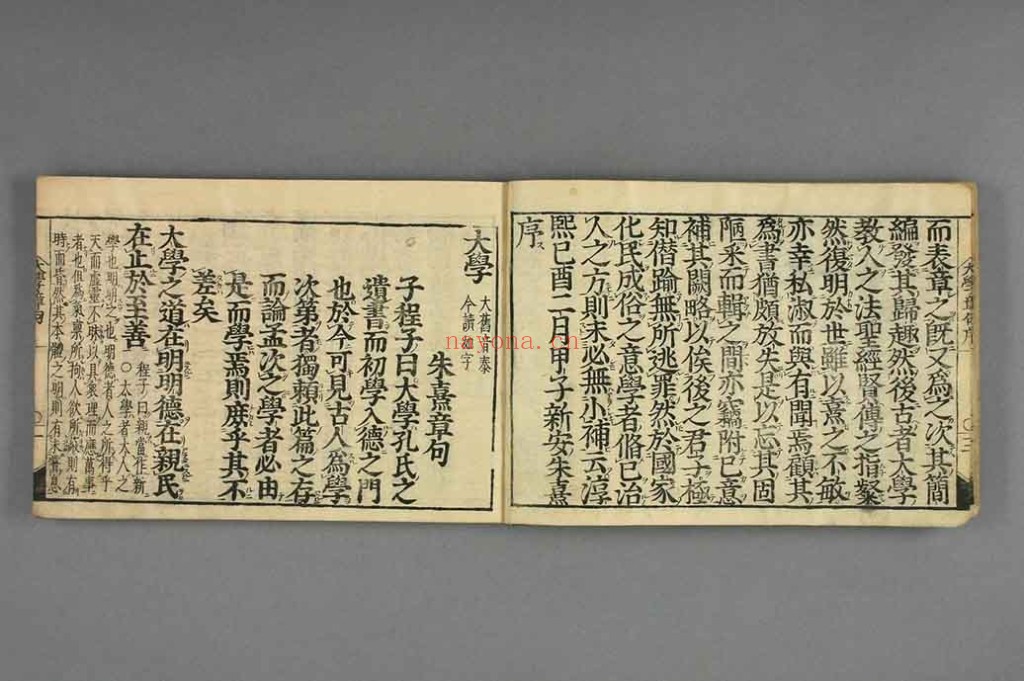 而表章之既又爲之次其簡
編發其歸趣然後古者大學
教人之法聖經賢傳之指粲
然復明於世雖以熹之不敏
亦幸私淑而與有聞焉顧其
爲書猶頗放失是以忘其固
陋采而輯之間亦竊附己意
補其闕略以俟後之君子極
知僭踰無所逃罪然於國家
化民成俗之意學者脩己治
人之方則未必無小補云淳
熙己酉二月甲子新安朱熹
序
大學
大舊音泰
今讀如字
朱熹章句
子程子曰大學孔氏之
遺書而初學入德之門
也於今可見古人爲學
次第者獨賴此篇之存
而論孟次之學者必由
是而學焉則庶乎其不
差矣
大學之道在明明德在親民
在止於至善
程子曰親當作新
○大學者大人之
學也明明之也明德者人之所得乎
天而虛靈不昧以具衆理而應萬事
者也但爲氣稟所拘人欲所蔽則有
時而昏然其本體之明則有未嘗息
nayona.cn